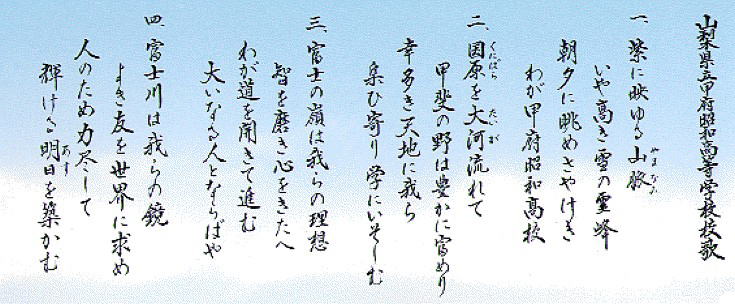 山梨県立甲府昭和高等学校校歌
一、紫に映ゆる山脈
やまなみ
いや高き雪の霊峰
朝夕に眺めさやけき
わが甲府昭和高校
二、国原を大河流れて
くにばら たいが
甲斐の野は豊かに富めり
幸多き天地に我ら
集ひ寄り学にいそしむ
三、富士の嶺は我らの理想
智を磨き心をきたへ
わが道を開きて進む
大いなる人とならばや
四、富士川は我らの鏡
よき友を世界に求め
人のため力尽して
輝ける明日を築かむ
あす